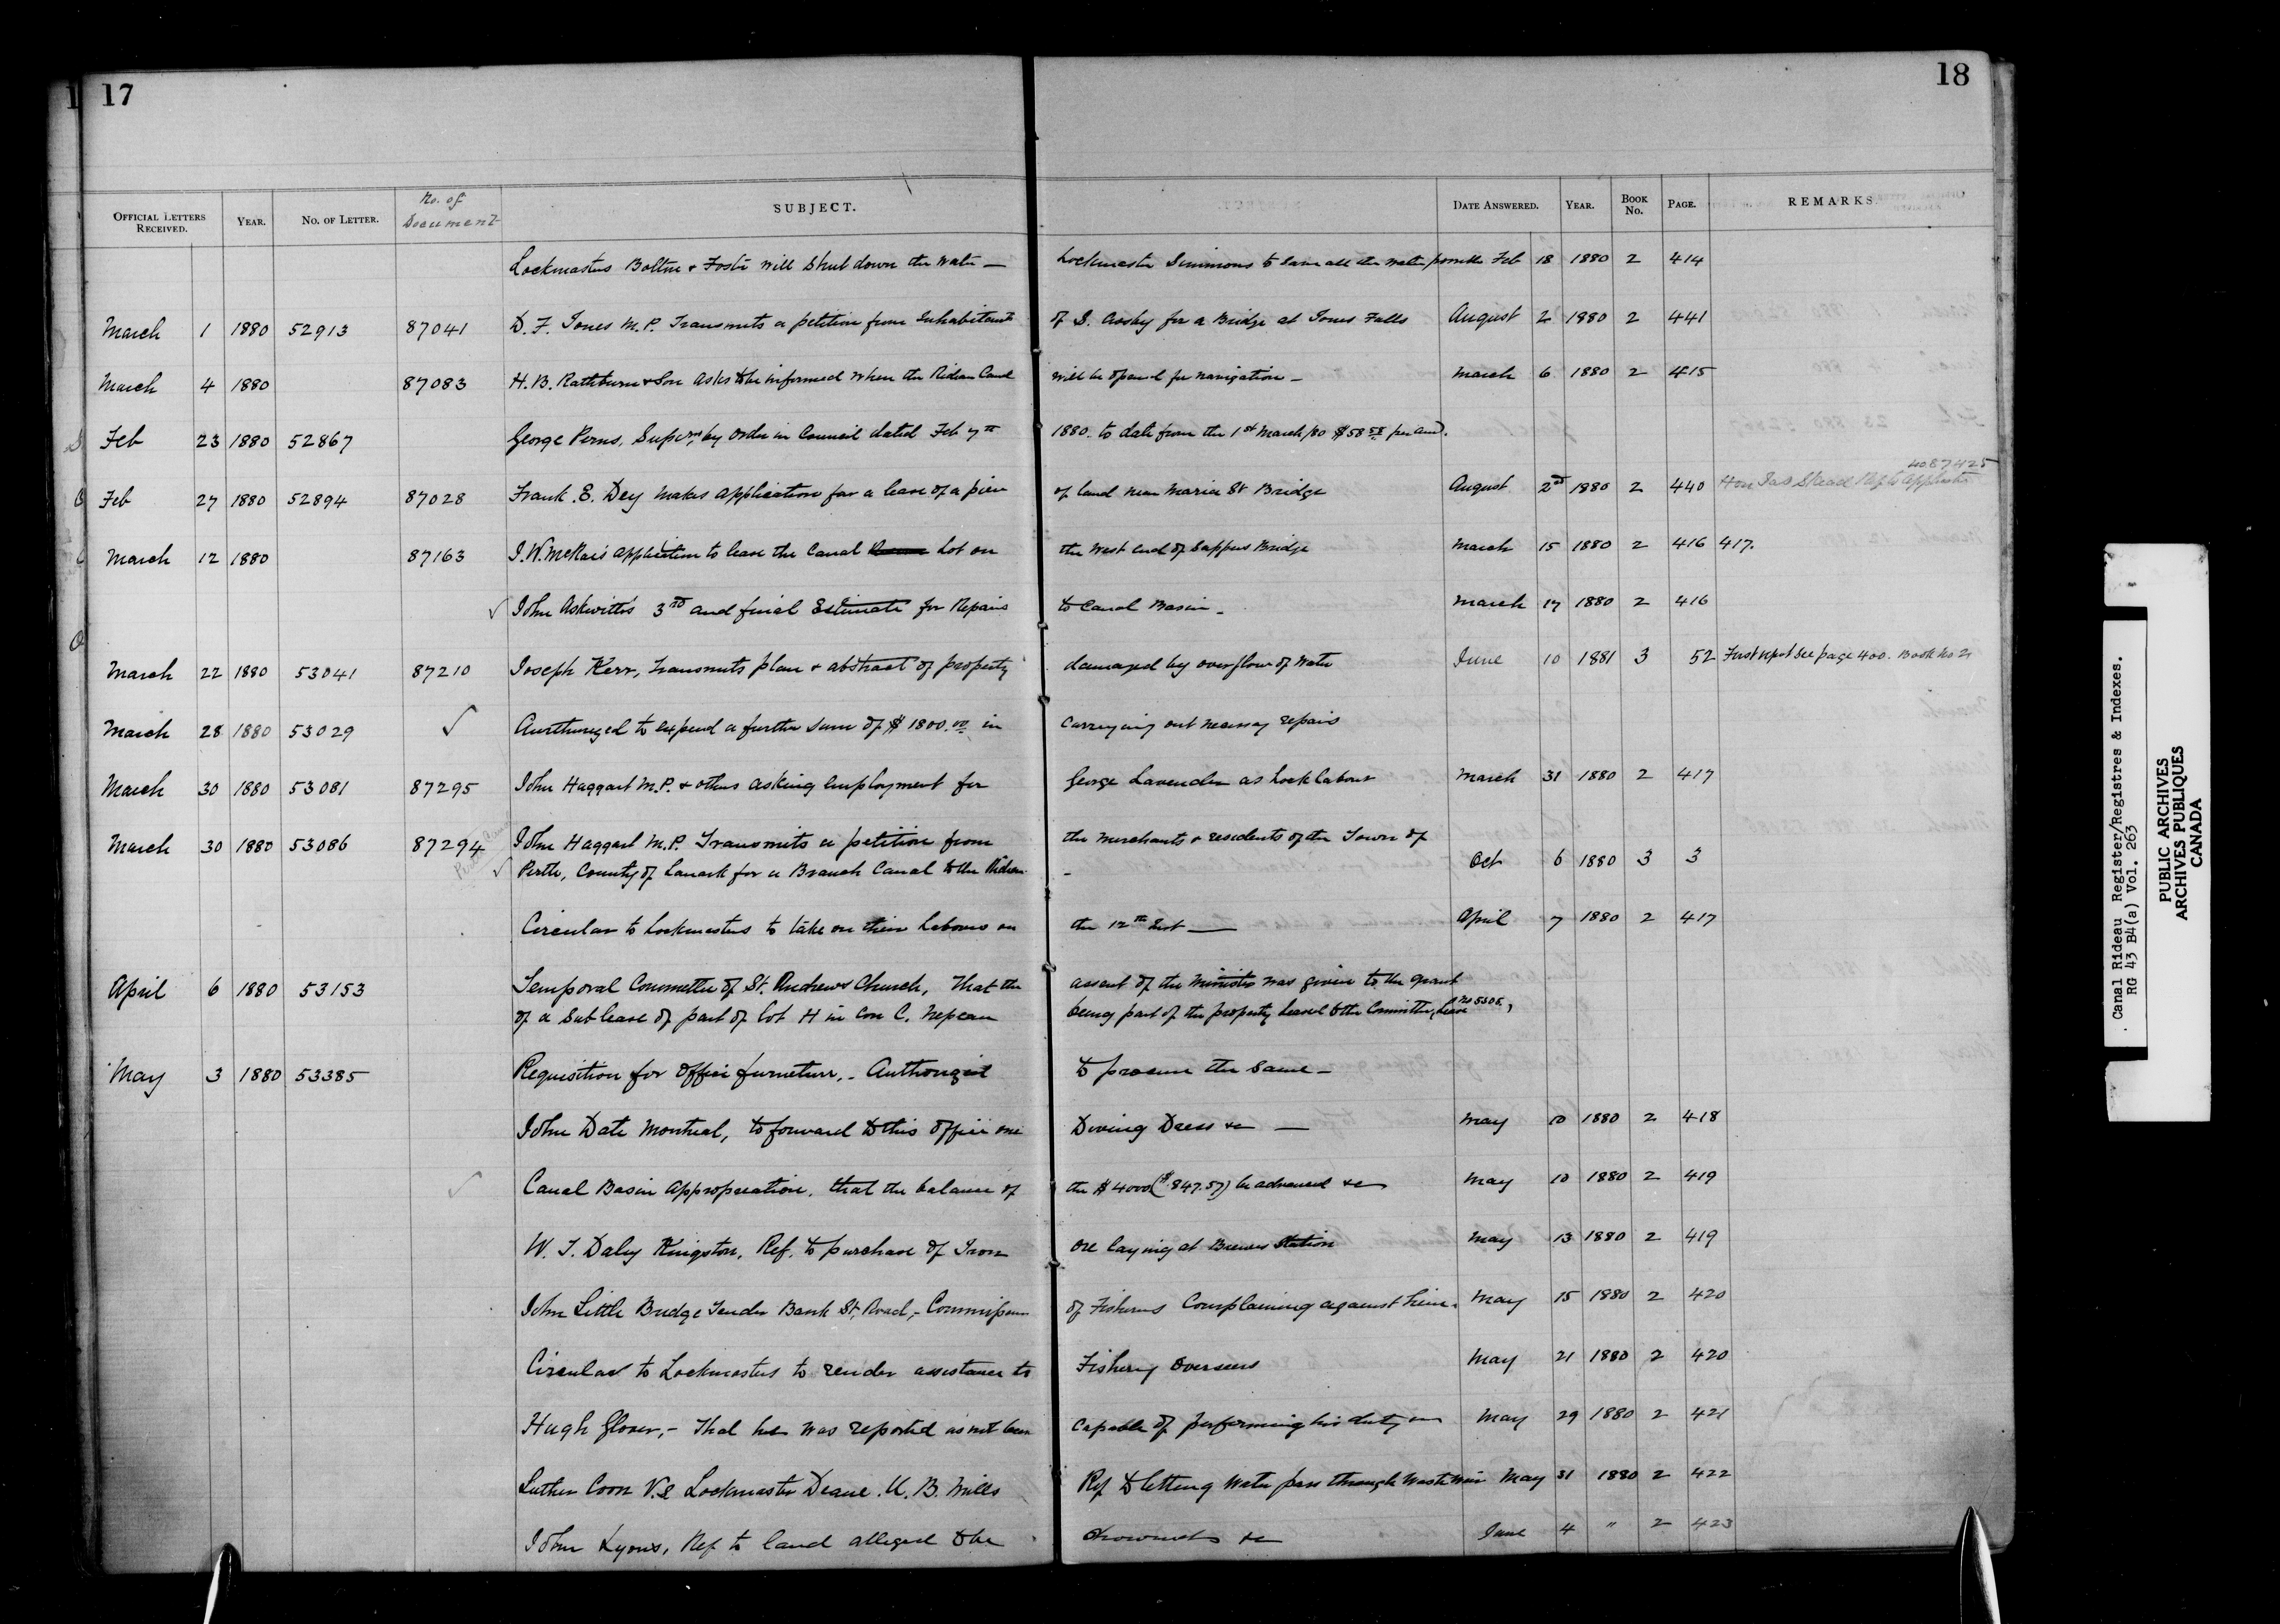 17
18
OFFICIAL LETTERS RECEIVED. YEAR. NO. OF LETTER. No. of Document SUBJECT. DATE ANSWERED. YEAR. BOOK No. PAGE. REMARKS.
Lockmasters Bolton & Foster will Shut down the Water — Lockmaster Simmons to save all the water possible Feb 18 1880 2 414
March 1 1880 52913 87041 D. F. Jones M.P. Transmits a petition from Inhabitants of S. Crosby for a Bridge at Jones Falls August 2 1880 2 441
March 4 1880 87083 H. B. Rathburn & Son Asks to be informed when the Rideau Canal will be opened for navigation — March 6 1880 2 415
Feb 23 1880 52867 George Perns, Super, by Order in Council dated Feb 7th 1880. to date from the 1st March/80 $58 per and.
Feb 27 1880 52894 87028 Frank E. Dey makes application for a lease of a piece of land near Maria St Bridge August 2nd 1880 2 440 Hon Jas Skead Ref to application No 87425
March 12 1880 87163 J. W. McRae's application to lease the Canal Lot on the West end of Sappers Bridge March 15 1880 2 416 417.
✓ John Askwith's 3rd and final Estimate for Repairs to Canal Basin — March 17 1880 2 416
March 22 1880 53041 87210 Joseph Kerr, Transmits plan & abstract of property damaged by overflow of water June 10 1881 3 52 First report See page 400. Book No 2
March 28 1880 53029 ✓ Aurthurized to expend a further sum of $1800.00 in Carrying out necessary repairs
March 30 1880 53081 87295 John Haggart M.P. & others asking employment for George Lavender as Lock labour March 31 1880 2 417
March 30 1880 53086 87294 John Haggart M.P. Transmits a petition from the Merchants & residents of the Town of
✓ Perth, County of Lanark for a Branch Canal to the Rideau — Oct 6 1880 3 3
Circular to Lockmasters to take on their Labours on the 12th Inst — April 7 1880 2 417
April 6 1880 53153 Temporal Committee of St. Andrews Church, That the assent of the Minister was given to the grant
of a Sub lease of part of Lot H in Con C. Nepean being part of the property leased to the Committee, Lease No 5505,
May 3 1880 53385 Requisition for Office furneture, — Authorized to procure the Same —
John Date Montreal, to forward to this office one Diving Dress &c — May 10 1880 2 418
✓ Canal Basin Appropreation, that the balance of the $4000 ($.847.57) be advanced &c May 10 1880 2 419
W. J. Daley Kingston, Ref. to purchase of Iron ore laying at Brewers Station May 13 1880 2 419
John Little Bridge Tender Bank St. Road, — Commissioner of Fisheries Complaining against him. May 15 1880 2 420
Circular to Lockmasters to render assistance to Fishery Overseers May 21 1880 2 420
Hugh Glover, — That he was reported as not been Capable of performing his duty May 29 1880 2 421
Luther Coon V.s Lockmaster Deane U. B. Mills Ref to letting water pass through Waste Weir May 31 1880 2 422
John Lyons, Ref to land alleged to be drowned &c June 4 " 2 423
Canal Rideau Register/Registres & Indexes.
RG 43 B4(a) Vol. 263
PUBLIC ARCHIVES
ARCHIVES PUBLIQUES
CANADA